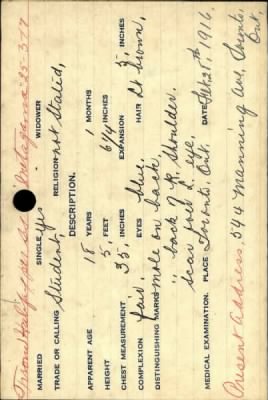 MARRIED SINGLE yes WIDOWER
TRADE OR CALLING Student, RELIGION not stated,
DESCRIPTION.
APPARENT AGE 18 YEARS 1 MONTHS
HEIGHT 5, FEET 6 3/4 INCHES
CHEST MEASUREMENT 35, INCHES EXPANSION 3, INCHES
COMPLEXION fair. EYES blue. HAIR Lt brown,
DISTINGUISHING MARKS mole on back
" back of R. Shoulder.
scar over L. eye.
MEDICAL EXAMINATION. PLACE Toronto. Ont. DATE 25th, 1916.
Present Address, 544 Manning Ave, Toronto, Ont.